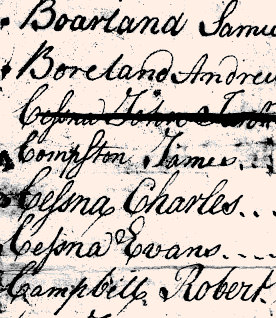 Boarland Samu
Boreland Andrew
Cessna John
Compston James.
Cessna Charles...
Cessna Evans....
Campbill Robert.